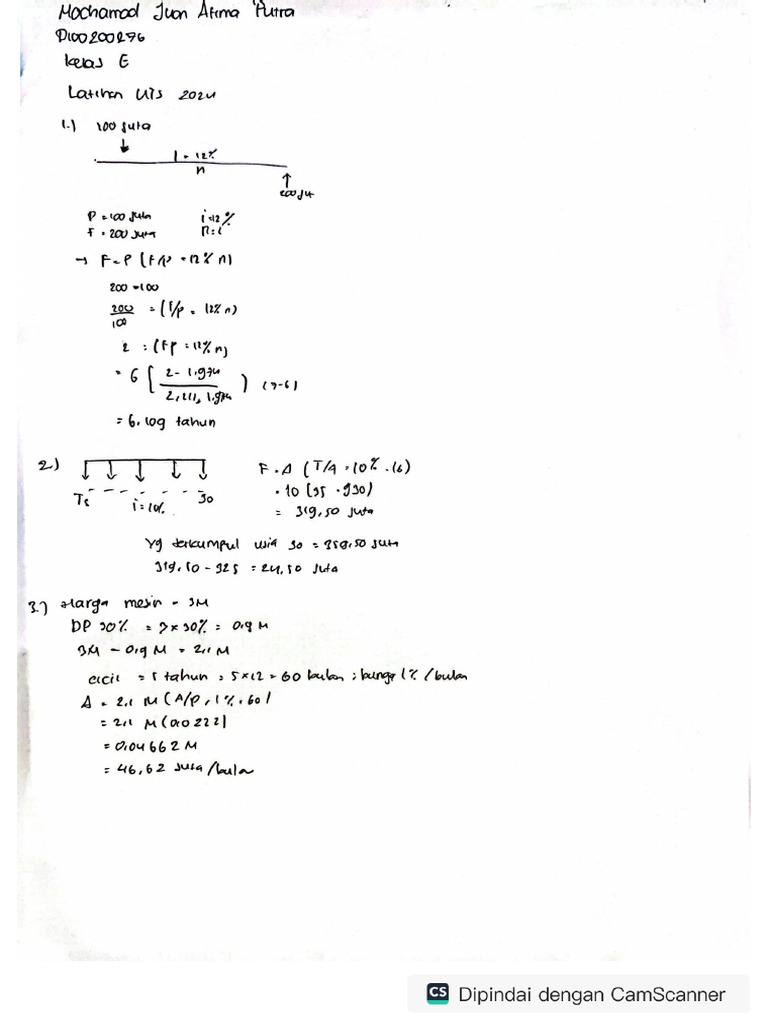 Mochamad Juan Atma Putra
D100200296
Kelas E
Latihan UTS 2024
1.) 100 juta
i = 12%
n
200 jt
P = 100 juta i = 12%
F = 200 juta n = ?
→ F = P (F/P = 12% n)
200 = 100
200/100 = (F/P = 12% n)
2 = (F/P = 12% n)
= 6 [ (2 - 1,974) / (2,211, 1,974) ] (7-6)
= 6,109 tahun
2.) F = A (F/A = 10% . 16)
15 i = 10% 30
= 10 (35.950)
= 359,50 juta
Yg terkumpul usia 30 = 359,50 juta
359,50 - 325 = 24,50 juta
3.) Harga mesin = 3M
DP 30% = 3 x 30% = 0,9 M
3M - 0,9 M = 2,1 M
cicil = 5 tahun = 5 x 12 = 60 bulan ; bunga 1% / bulan
A = 2,1 M (A/P, 1%, 60)
= 2,1 M (0,0222)
= 0,04662 M
= 46,62 juta /bula
CS Dipindai dengan CamScanner